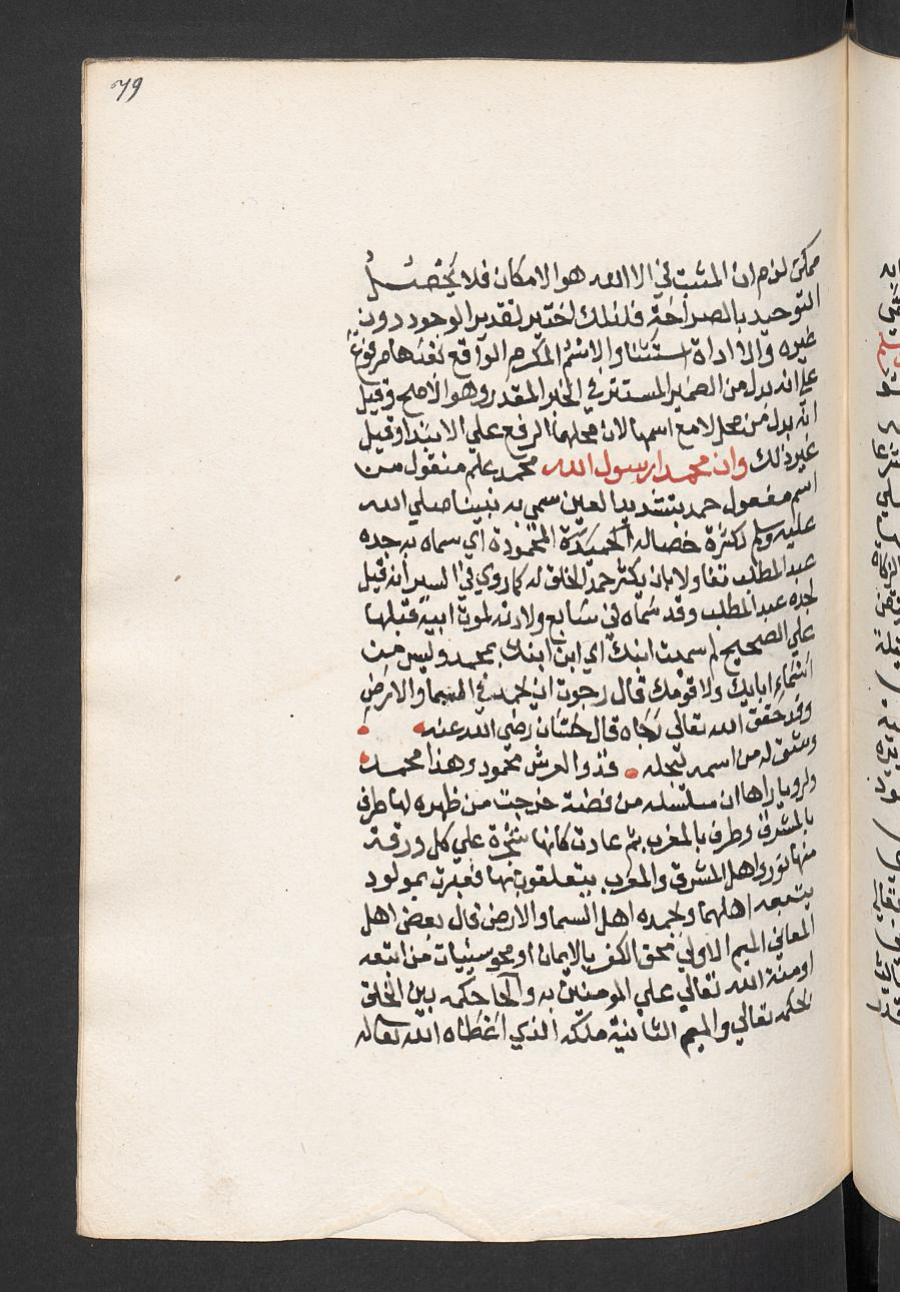 79
ممكن لزم ان المثبت في الا الله هو الامكان فلا يحصل
التوحيد بالصراحة فلذلك اختير تقدير الوجود دون
غيره والا اداة استثنا والاسم المكرم الواقع بعدها مرفوع
علي انه بدل من الضمير المستتر في الخبر المقدر وهو الاصح وقيل
انه بدل من محل لا مع اسمها لان محلهما الرفع علي الابتدا وقيل
غير ذلك وان محمدا رسول الله محمد علم منقول من
اسم مفعول حمد بتشديد العين سمي به نبينا صلي الله
عليه وسلم لكثرة خصاله الحميدة المحمودة اي سماه به جده
عبد المطلب تفاولا بان يكثر حمد الخلق له كما روي في السير انه قيل
لجده عبد المطلب وقد سماه في سابع ولادته لموت ابيه قبلها
علي الصحيح لم سميت ابنك اي ابن ابنك بمحمد وليس من
اسماء ابايك ولا قومك قال رجوت ان يحمد في السما والارض
وقد حقق الله تعالي رجاه قال حسان رضي الله عنه
وشق له من اسمه ليجله فذو العرش محمود وهذا محمد
ولرويا راها ان سلسله من فضة خرجت من ظهره لها طرف
بالمشرق وطرف بالمغرب ثم عادت كانها شجرة علي كل ورقة
منها نور واهل المشرق والمغرب يتعلقون بها فعبرت بمولود
يتبعه اهلهما ويحمده اهل السما والارض قال بعض اهل
المعاني الميم الاولي محق الكفر بالايمان او محو سيئات من اتبعه
او منة الله تعالي علي المومنين به والحا حكمه بين الخلق
بحكمه تعالي والميم الثانية ملكه الذي اعطاه الله تعالي